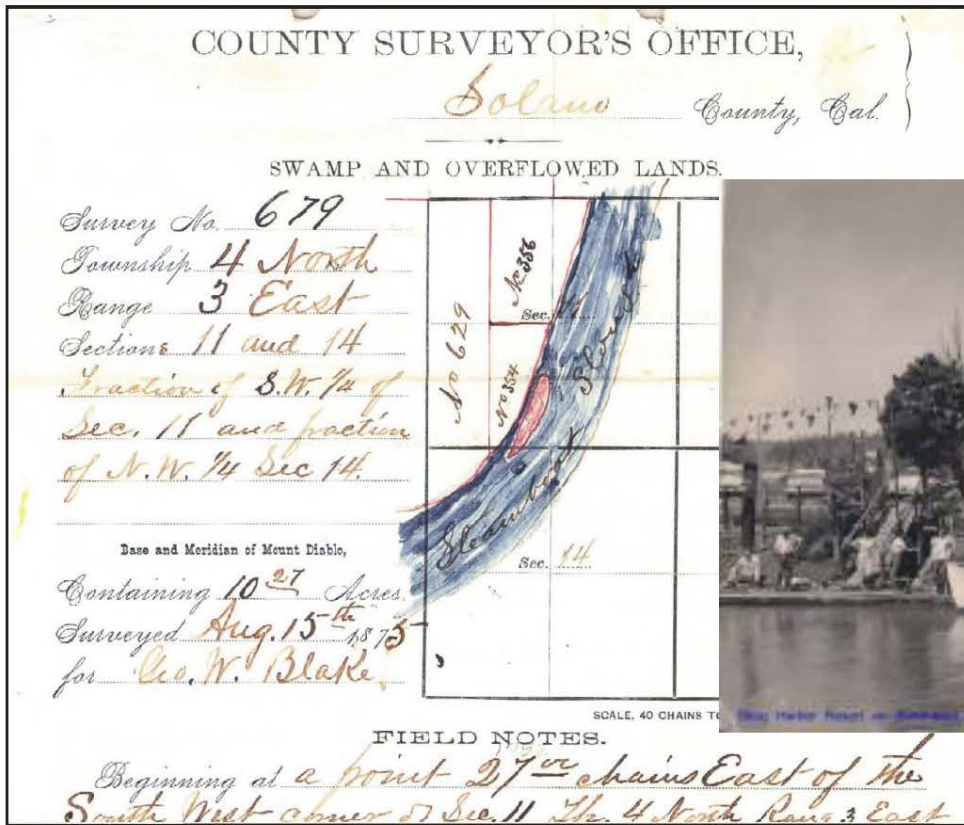 COUNTY SURVEYOR'S OFFICE,
Solano County, Cal.
SWAMP AND OVERFLOWED LANDS.
Survey No. 679
Township 4 North
Range 3 East
Sections 11 and 14
Fraction of S.W. 1/4 of
Sec. 11 and fraction
of N.W. 1/4 Sec 14.
Base and Meridian of Mount Diablo,
Containing 10 27 Acres,
Surveyed Aug. 15th 1875
for Geo. W. Blake
No 629
No 356
No 354
Sec. 11
Steamboat Slough
Sec. 14
SCALE, 40 CHAINS TO
Harbor Resort
FIELD NOTES.
Beginning at a point 27 chains East of the
South West corner of Sec. 11 Th. 4 North Rang. 3 East